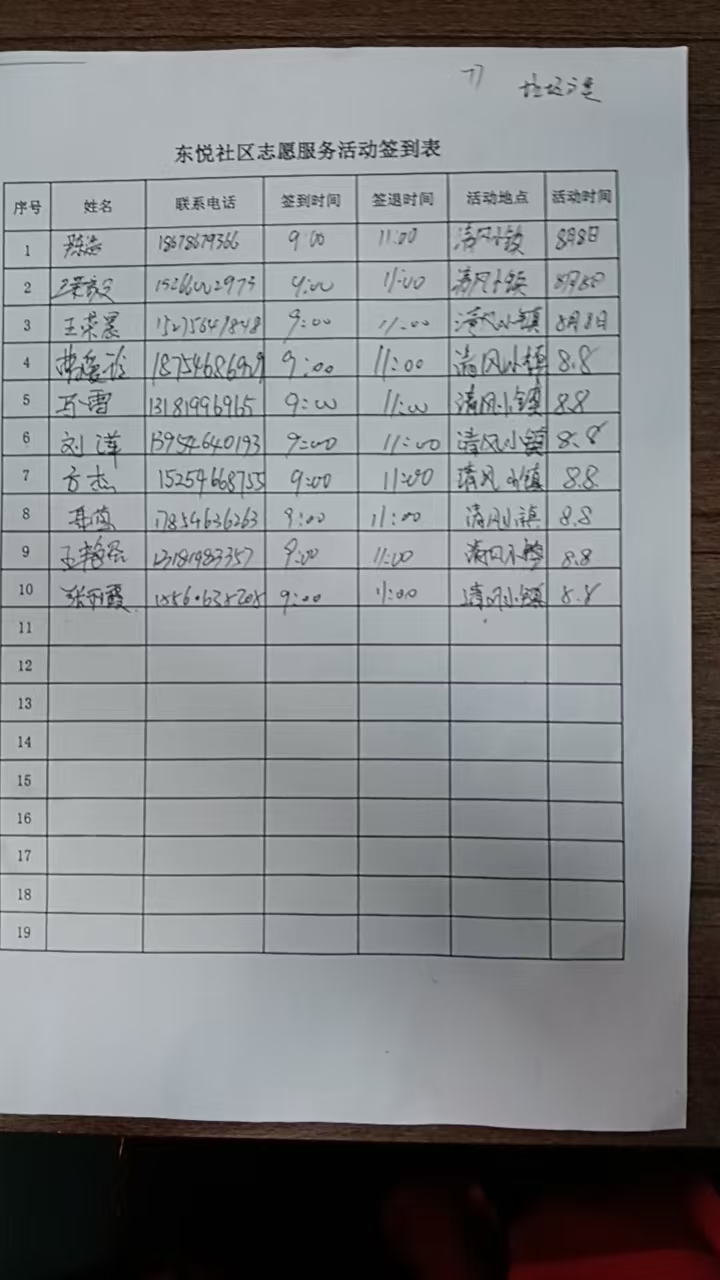 东悦社区志愿服务活动签到表
序号 姓名 联系电话 签到时间 签退时间 活动地点 活动时间
1 陈浩 18678679366 9:00 11:00 清风小镇 8月8日
2 9:00 11:00 清风小镇 8月8日
3 王荣晨 15275641848 9:00 11:00 清风小镇 8月8日
4 9:00 11:00 清风小镇 8.8
5 马雪 13181996965 9:00 11:00 清风小镇 8.8
6 刘洋 13954640193 9:00 11:00 清风小镇 8.8
7 方杰 15254668755 9:00 11:00 清风小镇 8.8
8 17854636263 9:00 11:00 清风小镇 8.8
9 13181983357 9:00 11:00 清风小镇 8.8
10 张丽霞 9:00 11:00 清风小镇 8.8
11
12
13
14
15
16
17
18
19